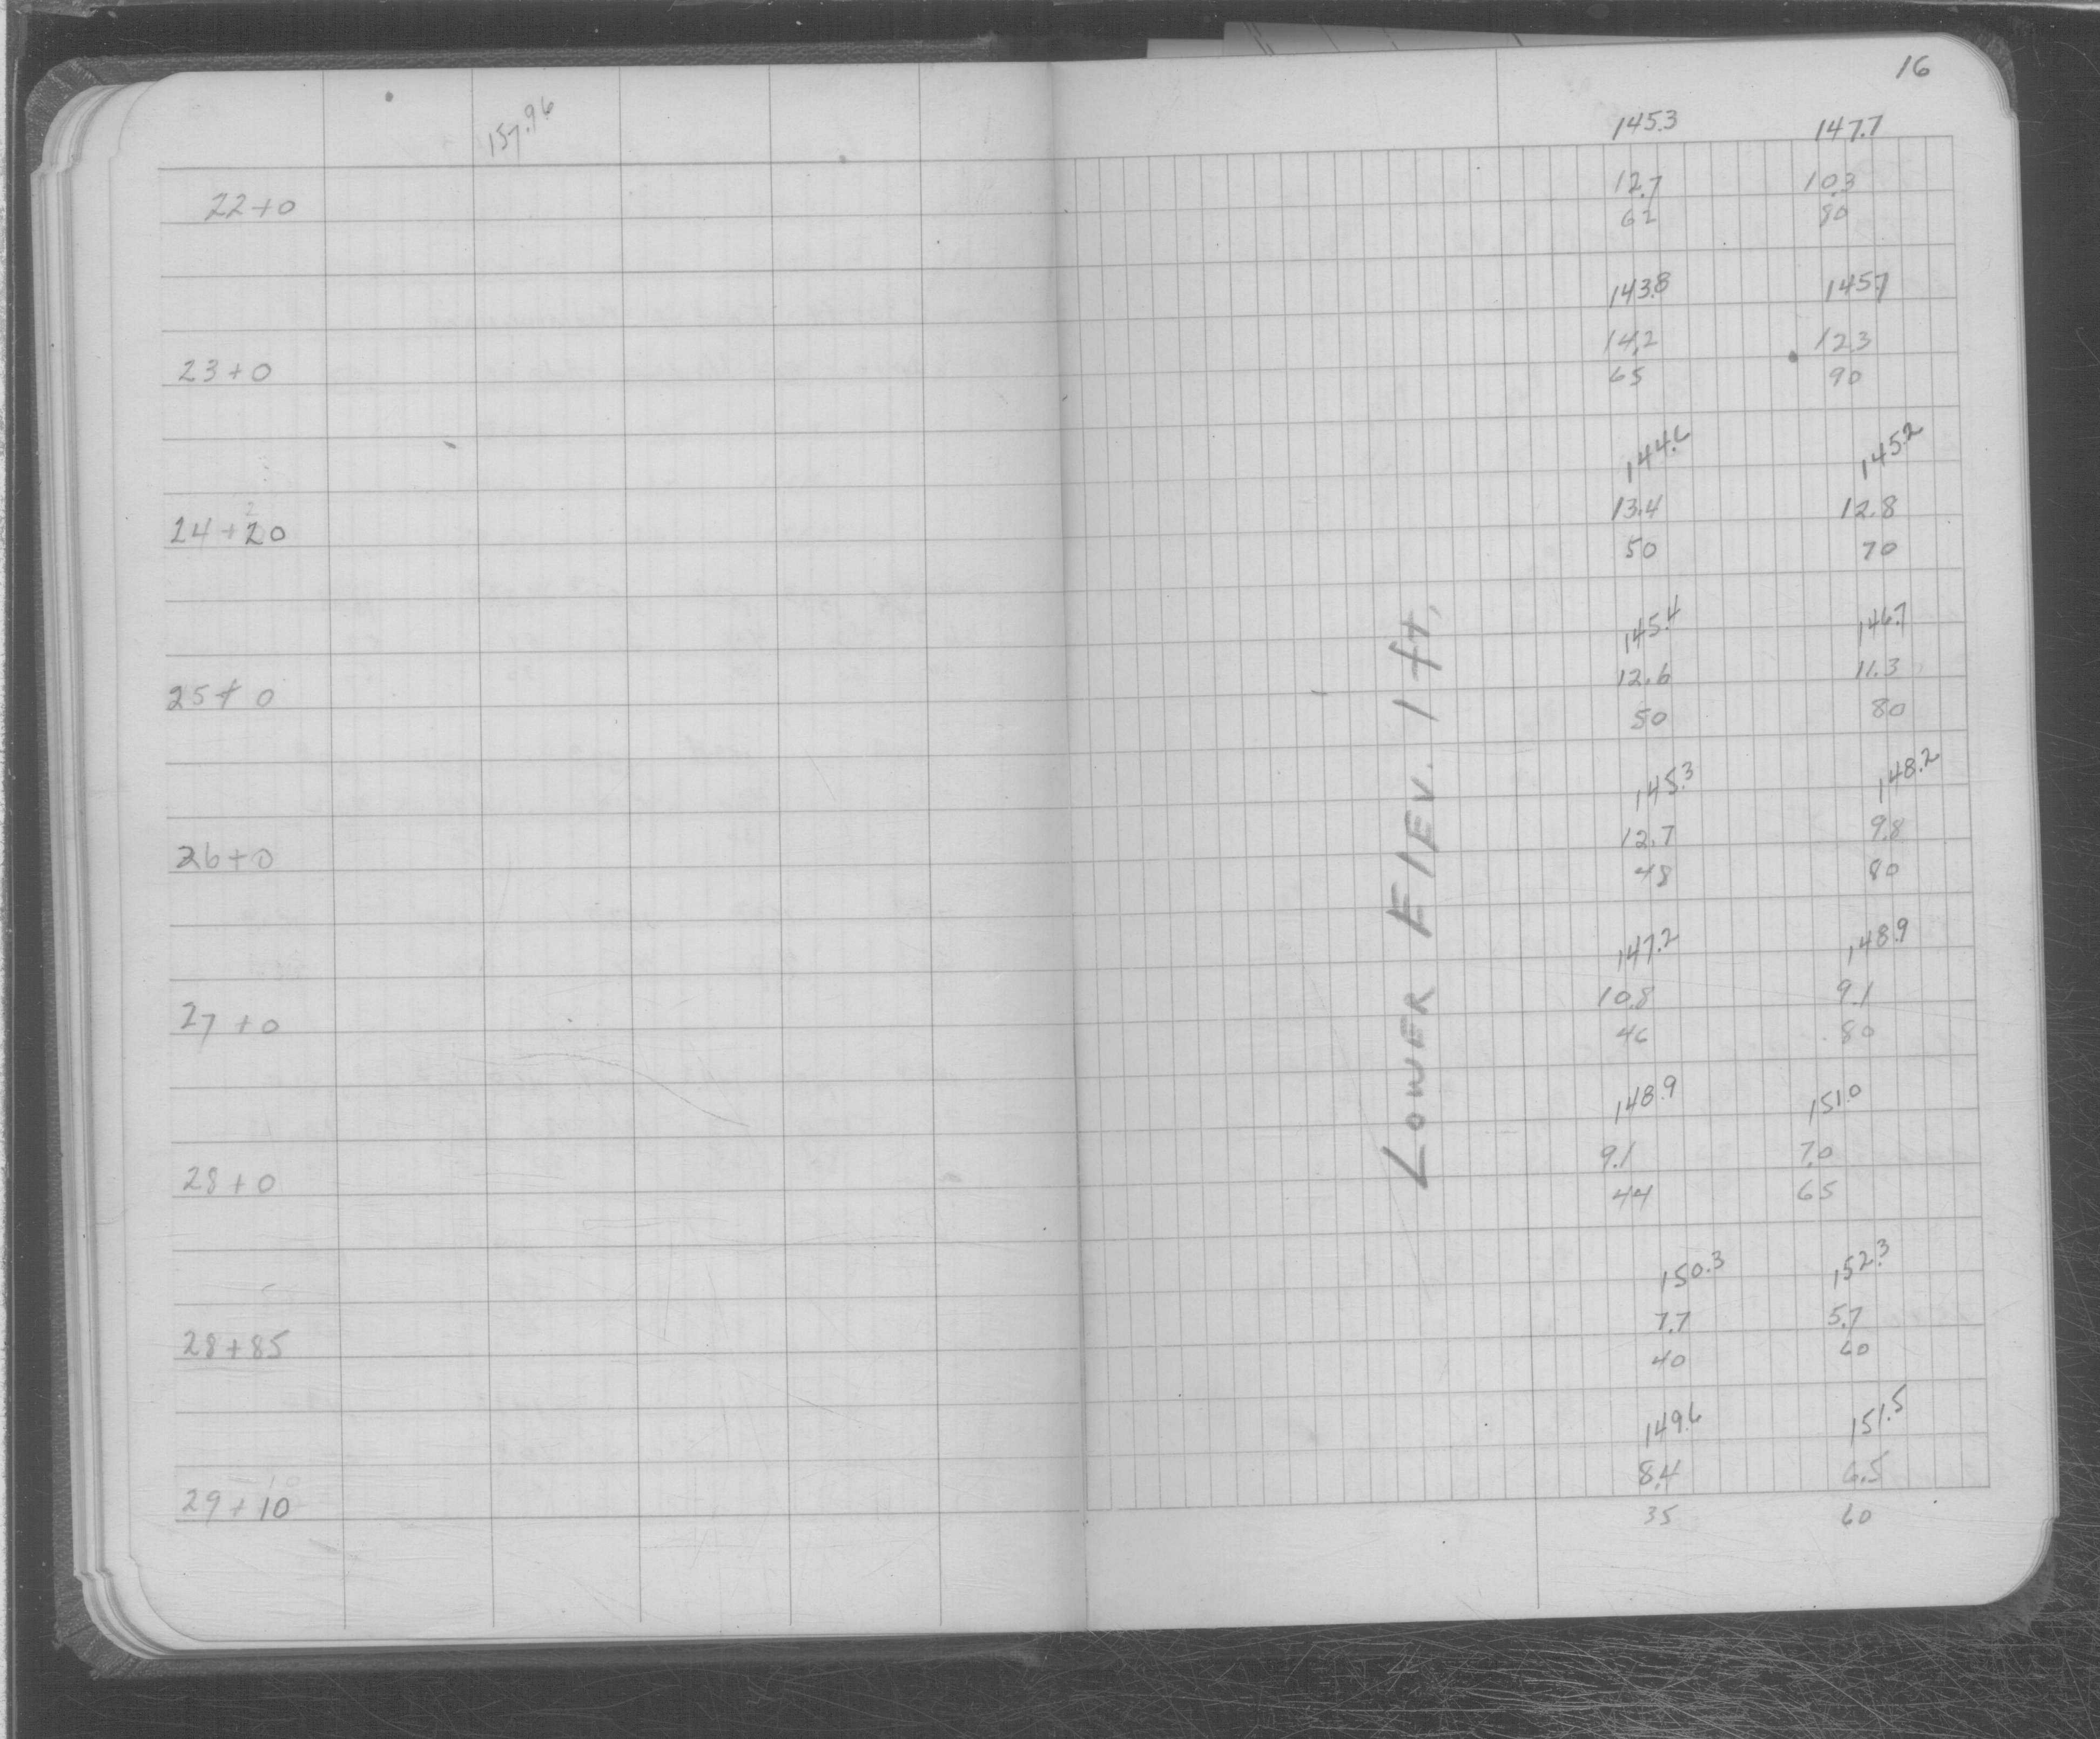 16
157.96
145.3 147.7
22+0 12.7 10.3
62 80
143.8 145.7
23+0 14.2 12.3
65 90
144.6 145.2
24+20 13.4 12.8
50 70
145.4 146.7
25+0 12.6 11.3
50 80
145.3 148.2
26+0 12.7 9.8
48 80
147.2 148.9
27+0 10.8 9.1
46 80
148.9 151.0
28+0 9.1 7.0
44 65
150.3 152.3
28+85 7.7 5.7
40 60
149.6 151.5
29+10 8.4 6.5
35 60
LOWER ElEV. 1 ft.